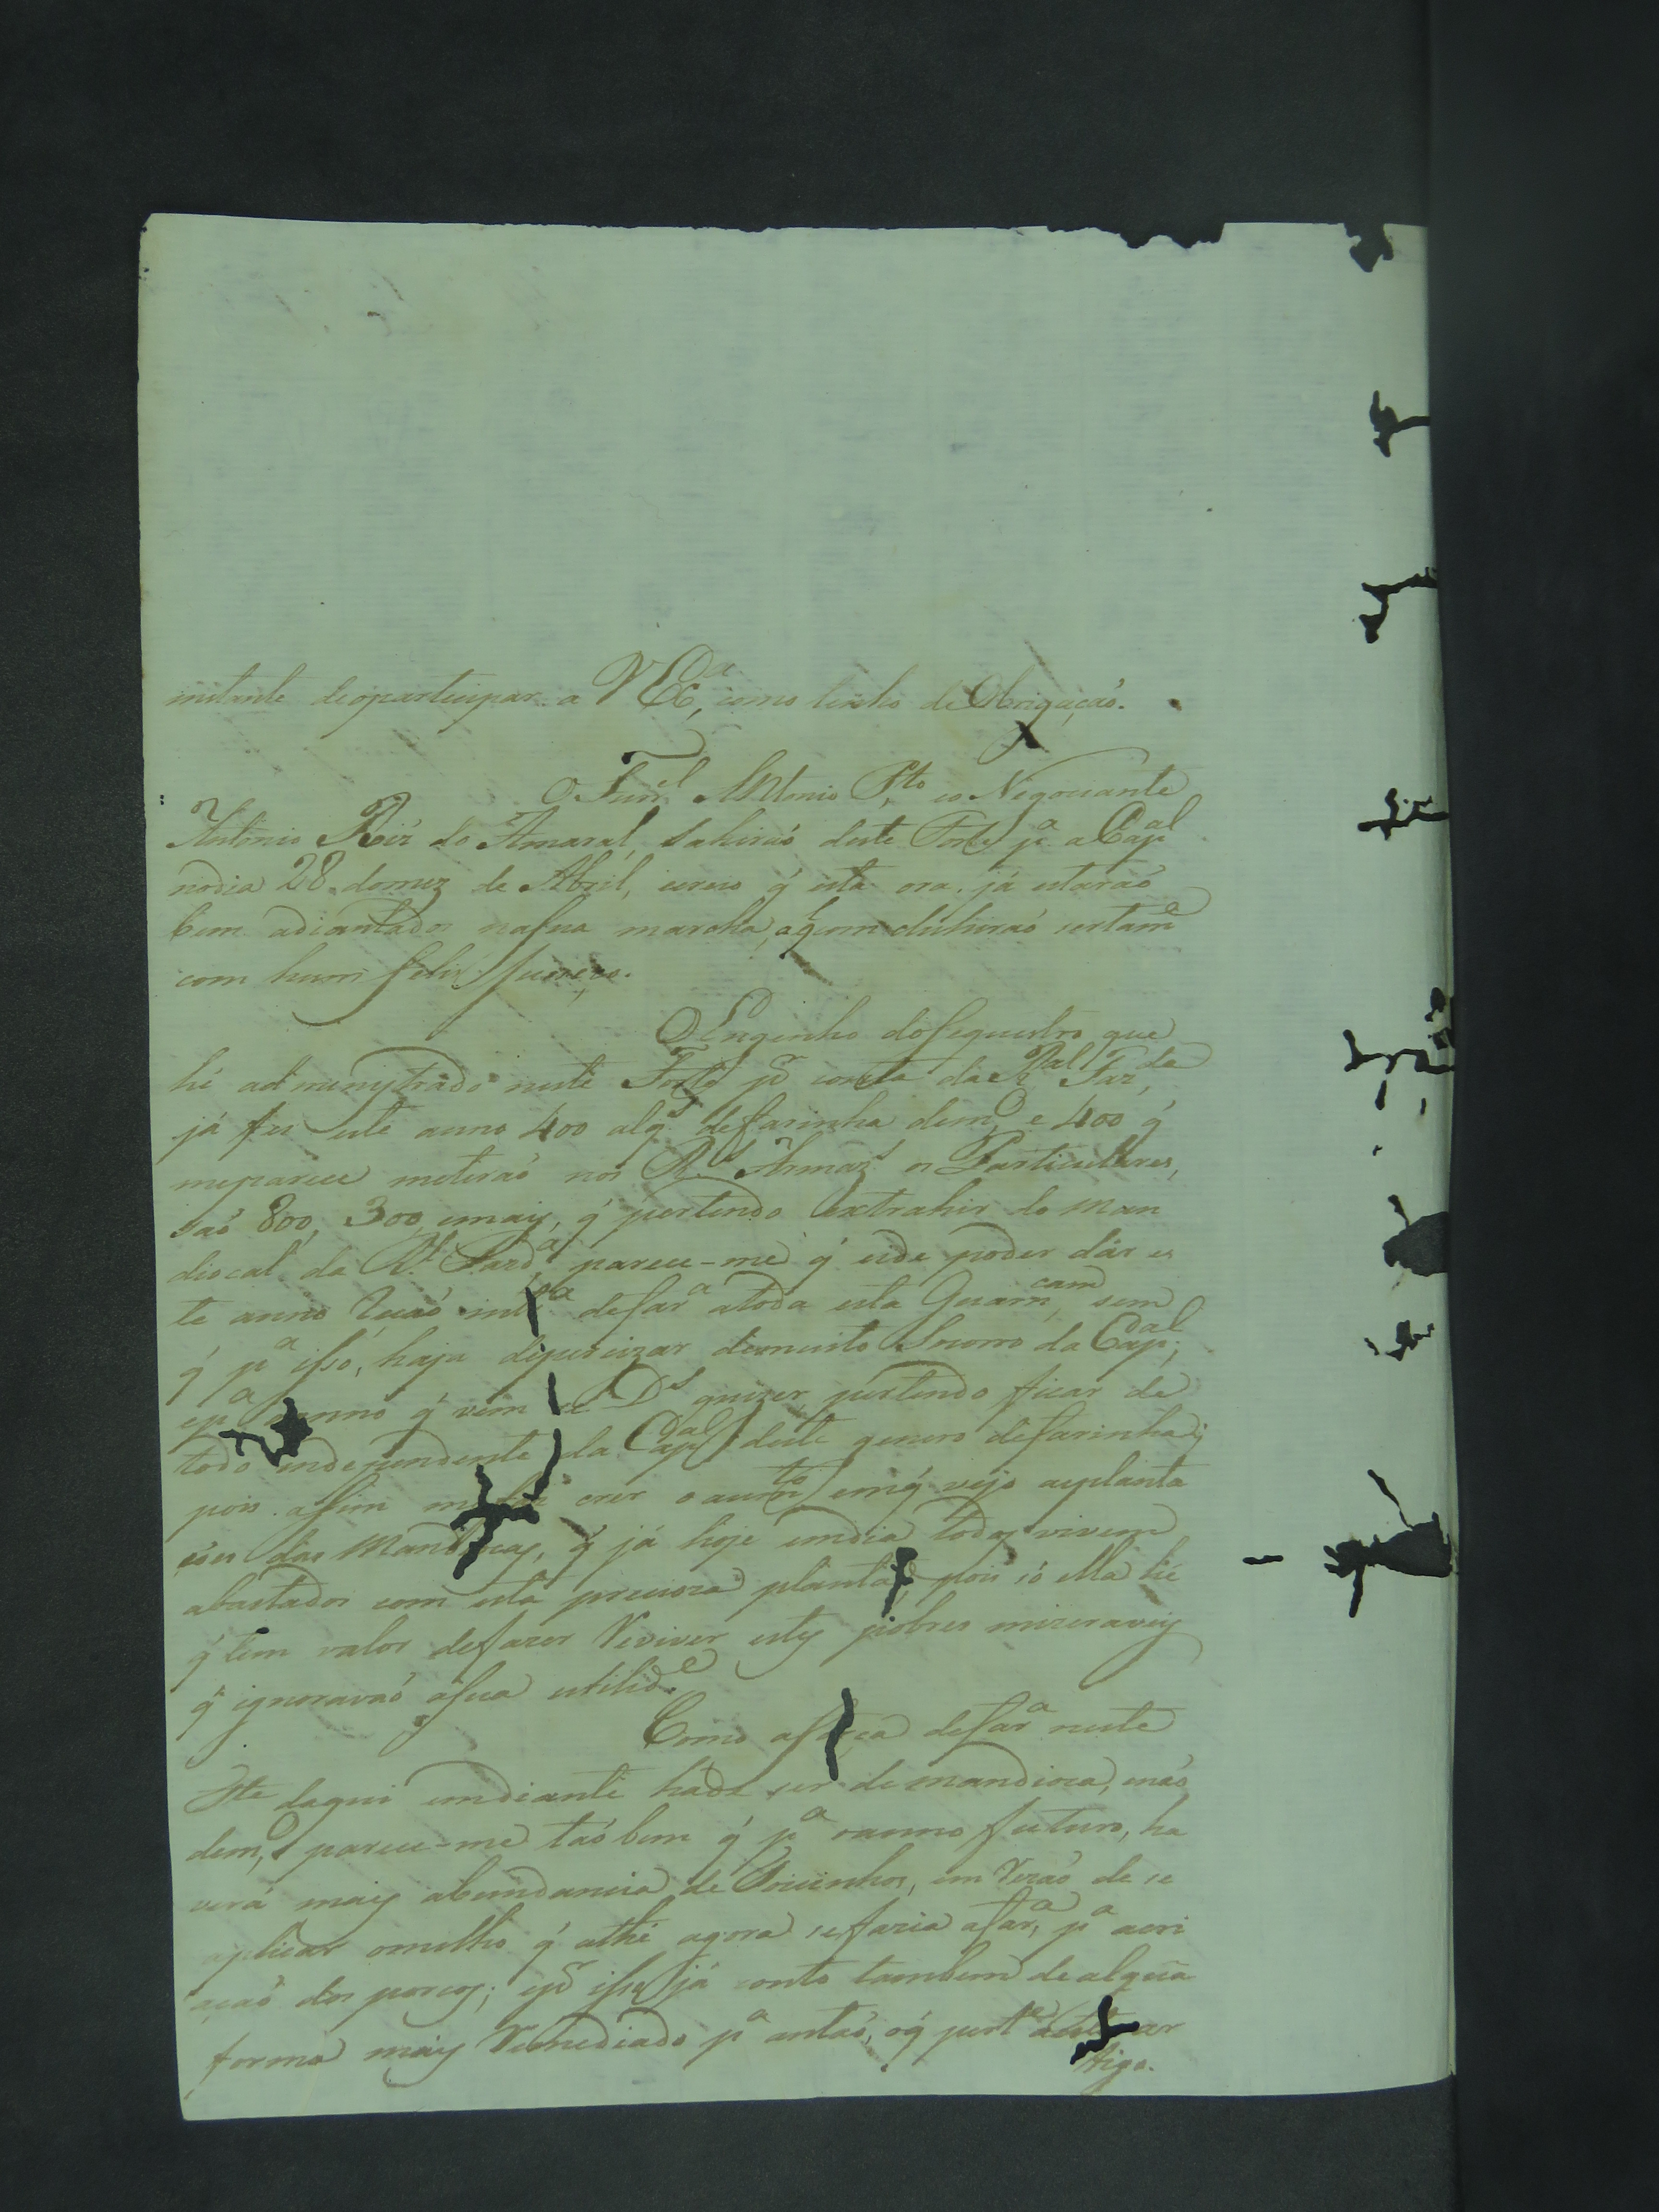 instante deoparticipar a V Exª, como tenho de Obrigação.
O Furrel Antonio Pto eo Negociante
Antonio Roiz do Amaral, sahirão deste Forte pª a Capal
nodia 28 domez de Abril, creio q̃ esta ora já estaraó
bem adiantados nasua marcha, eq̃ concluhiraó sertame
com hum feliz sucesso.
O Engenho do sequestro que
hé administrado neste Forte pr conta da Ral Fazda,
já fez este anno 400 alqs de farinha demo, e 400 q̃
meparece meteraó nos Rs Armazs os Particulares,
saó 800, 300, emais, q̃ pertendo extrahir do man
diocal da Rl Fazdª, parece-me q̃ eide poder dár es
te anno Raçaó intrª defarª atoda esta Guarncam, sem
q̃ pª isso, haja deprecizar demuito Socorro da Capal;
epª oanno q̃ vem se Ds quizer, pertendo ficar de
todo independente da Capal deste genero defarinha;
pois assim crer o aumto, emq̃ vejo asplanta
çoẽs das Mandiocas, q̃ já hoje emdia todos vivem
abastados com esta precioza planta, pois só ella hé
q̃ tem valor defazer Reviver estes pobres mizeraveis
q̃ ignoravaó asua utilide.
Como defarª neste
Fte daqui emdiante hade ser de mandioca, enaó
demo, parece-me taóbem q̃ pª oanno futuro, ha
verá mais abundancia de Toicinhos, em Rezaó de se
aplicar omilho q̃ athé agora sefazia afarª, pª acri
açaó dos porcos; epr isso já conto tambem de algũa
forma mais Remediado pª antaó, oq̃ pertº
tigo.